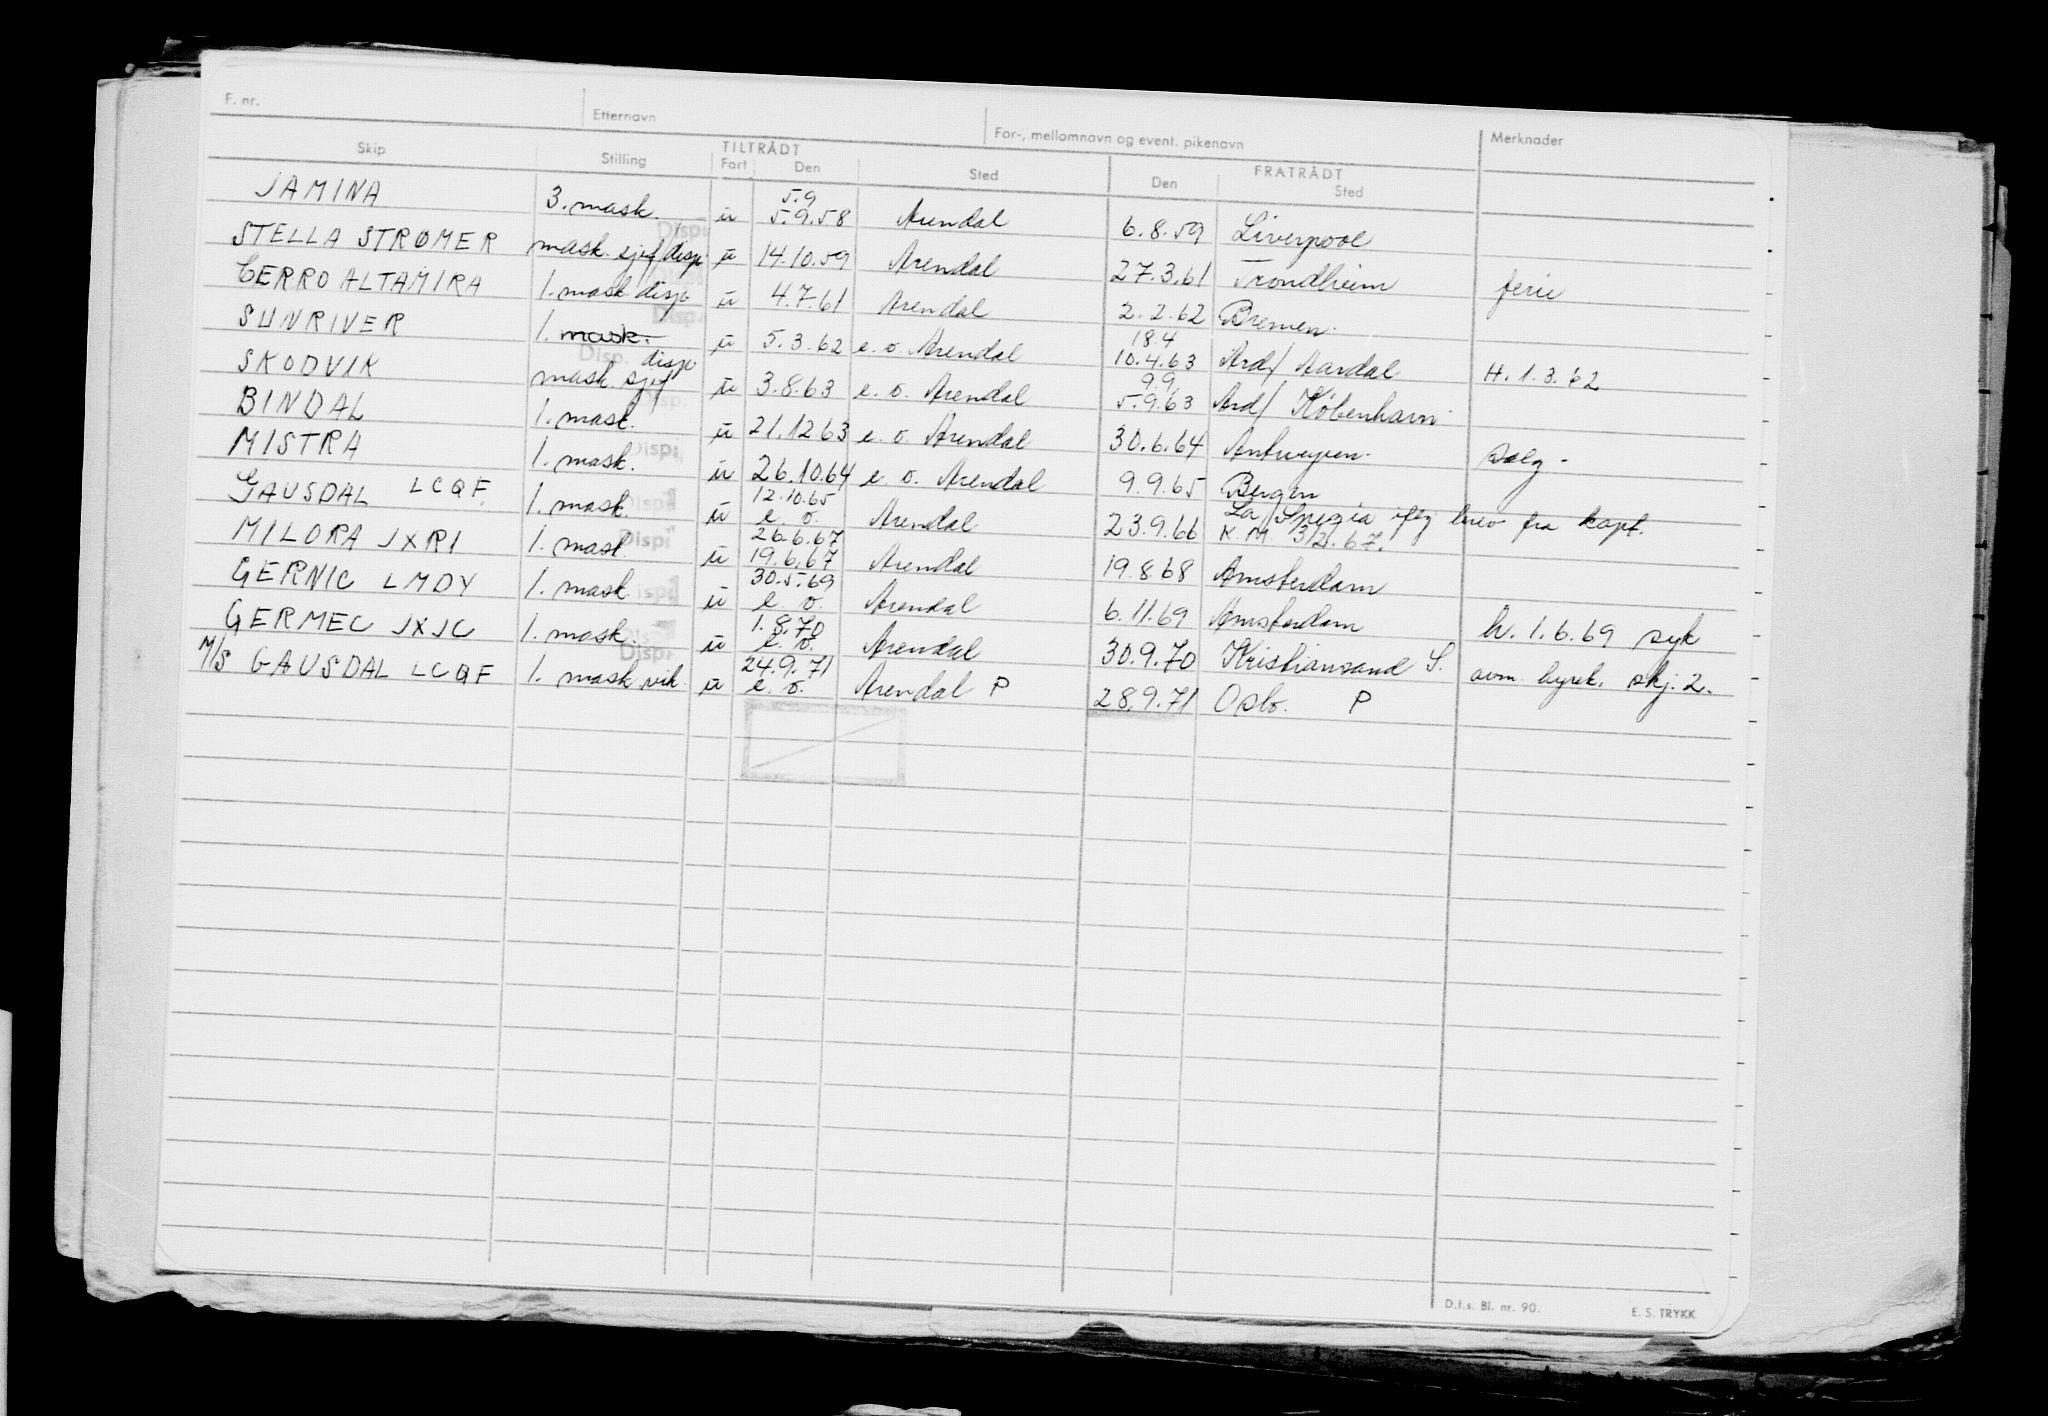 F. nr. Etternavn For-, mellomnavn og event. pikenavn Merknader
Skip Stilling TILTRÅDT FRATRÅDT
Fart Den Sted Den Sted
JAMINA 3. mask. u 5.9 5.9.58 Arendal 6.8.59 Liverpool
STELLA STRØMER mask. sjef disp u 14.10.59 Arendal 27.3.61 Trondheim ferie
CERRO ALTAMIRA 1. mask disp u 4.7.61 Arendal 2.2.62 Bremen.
SUNRIVER 1. mask. disp u 5.3.62 e. o. Arendal 18.4 10.4.63 Ard/ Aardal H. 1.3.62
SKODVIK mask sjef u 3.8.63 e. o. Arendal 9.9 5.9.63 Ard/ København
BINDAL 1. mask. u 21.12 63 e. o. Arendal 30.6.64 Antwerpen. salg -
MISTRA 1. mask. u 26.10.64 e. o. Arendal 9.9.65 Bergen
GAUSDAL LCQF 1. mask. u 12.10.65 e. o. Arendal 23.9.66 La Spezia iflg brev fra kapt.
K. M. 3/2.67.
MILORA JXRI 1. mask u 26.6.67 19.6.67 Arendal 19.8.68 Amsterdam
GERNIC LMDY 1. mask. u 30.5.69 e. o. Arendal 6.11.69 Amsterdam h. 1.6.69 syk
GERMEC JXJC 1. mask. u 1.8.70 e. o. Arendal 30.9.70 Kristiansand S. avm. hyrek. skj. 2.
M/S GAUSDAL LCQF 1. mask vik. u 24.9.71 e. o. Arendal P 28.9.71 Oslo. P
D.f.s. Bl. nr. 90. E. S. TRYKK